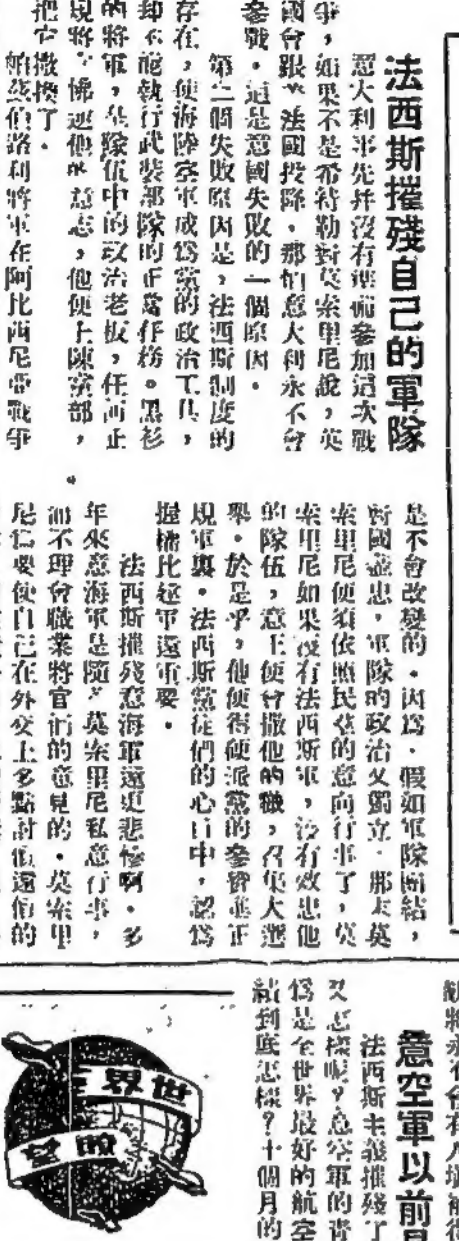 法西斯摧殘自己的軍隊
意大利事先幷沒有準備參加這次戰
爭,如果不是希特勒對莫索里尼說,英
國會跟法國投降,那怕意大利永不會
參戰。這是意國失敗的一個原因。
第二個失敗原因是,法西斯制度的
存在,使海陸空軍成爲黨的政治工具,
却不能執行武裝部隊的正當任務。黑衫
的將軍,是隊伍中的政治老板,任何正
規將 拂逆他的意志,他便上陳黨部,
把它撤換了。
帕茲伯洛利將軍在阿比西尼亞戰爭
是不會改變的。因爲,假如軍隊團結,
對國盡忠,軍隊的政治又獨立,那末莫
索里尼便須依照民衆的意向行事了,莫
索里尼如果沒有法西斯軍,沒有效忠他
的隊伍,意王便會撤他的職,召集大選
舉。於是乎,他便得硬派黨的參 進正
規軍裏。法西斯黨徒們的心目中,認爲
握權比 軍還重要。
法西斯摧殘意海軍還更悲慘啊。多
年來意海軍是隨 莫索里尼私意行事,
而不理會職業將官們的意見的。莫索里
尼 要使自己在外交上多點討價還價的
意空軍以前
法西斯主義摧殘了
又怎樣呢?意空軍的
爲是全世界最好的航空
結到底怎樣?十個月的
世界
瞭望